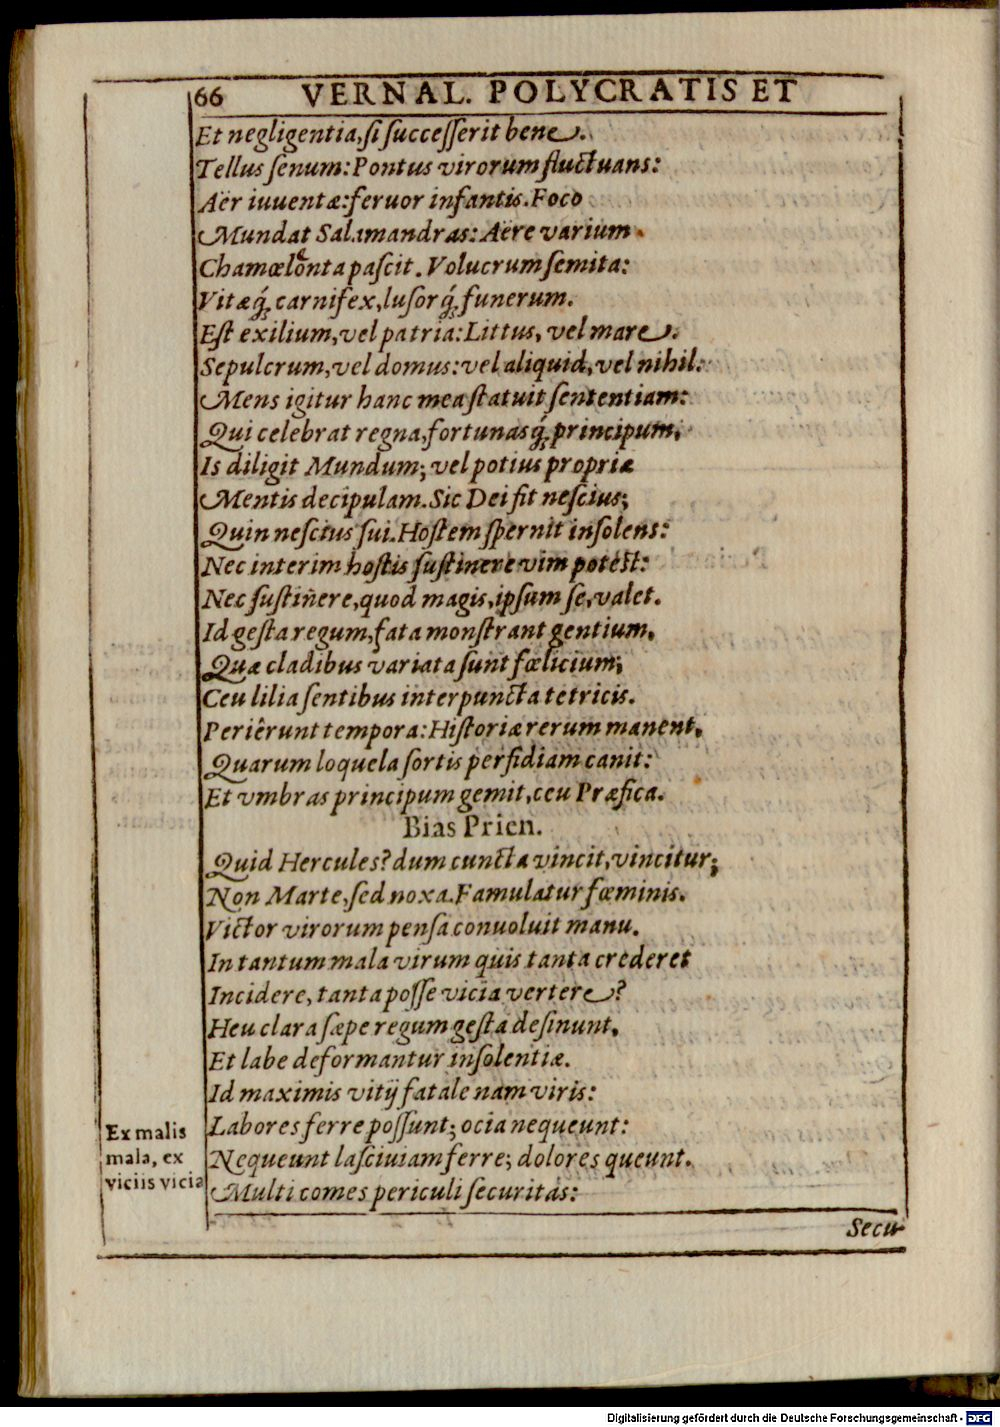 66 VERNAL. POLYCRATIS ET
Et negligentia, ſi ſucceſſerit bene.
Tellus ſenum: Pontus virorum fluctuans:
Aër iuuentæ: feruor infantis. Foco
Mundat Salamandras: Aëre varium.
Chamæleonta paſcit. Volucrum ſemita:
Vitæq́; carnifex, luſorq́; funerum.
Eſt exilium, vel patria: Littus, vel mare.
Sepulcrum, vel domus: vel aliquid, vel nihil:
Mens igitur hanc mea ſtatuit ſententiam:
Qui celebrat regna, fortunasq́; principum,
Is diligit Mundum; vel potius propriæ
Mentis decipulam. Sic Dei fit neſcius;
Quin neſcius ſui. Hoſtem ſpernit inſolens:
Nec interim hoſtis ſuſtinere vim poteſt:
Nec ſuſtinere, quod magis, ipſum ſe, valet.
Id geſta regum, fata monſtrant gentium,
Quæ cladibus variata ſunt fœlicium;
Ceu lilia ſentibus interpuncta tetricis.
Periêrunt tempora: Hiſtoriæ rerum manent,
Quarum loquela ſortis perfidiam canit:
Et vmbras principum gemit, ceu Præfica.
Bias Prien.
Quid Hercules? dum cuncta vincit, vincitur;
Non Marte, ſed noxa. Famulatur fœminis.
Victor virorum penſa conuoluit manu.
In tantum mala virum quis tanta crederet
Incidere, tanta poſſe vicia vertere?
Heu clara ſæpe regum geſta deſinunt,
Et labe deformantur inſolentiæ.
Id maximis vitij fatale nam viris:
Labores ferre poſſunt; ocia nequeunt:
Nequeunt laſciuiam ferre; dolores queunt.
Multi comes periculi ſecuritas:
Ex malis
mala, ex
viciis vicia
Secu-
Digitalisierung gefördert durch die Deutsche Forschungsgemeinschaft - DFG